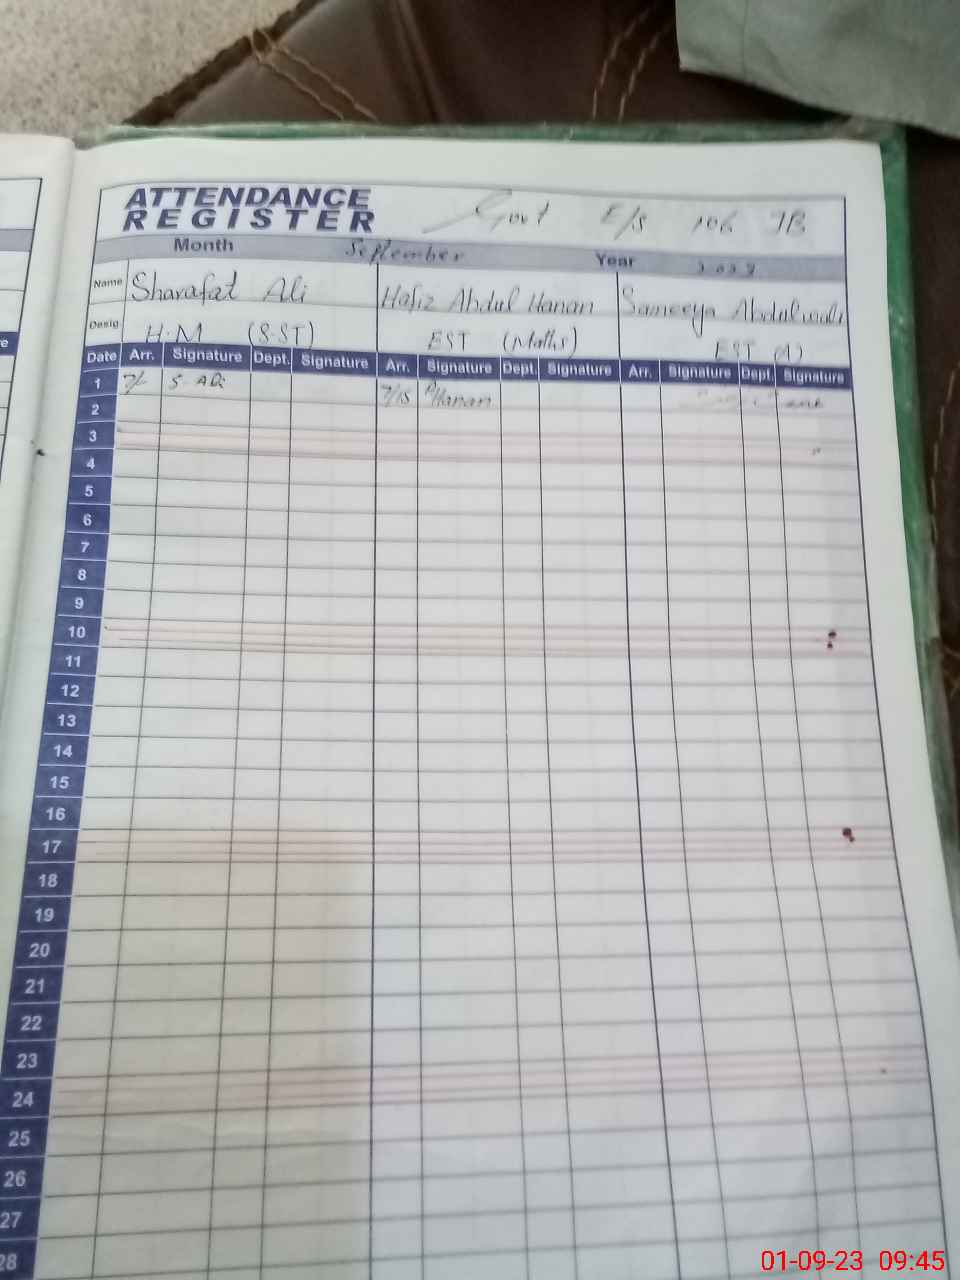 ATTENDANCE
REGISTER Govt E/S 106 JB
Month September Year
Name Sharafat Ali Hafiz Abdul Hanan Sameeya Abdulwali
Desig H.M (S.ST) EST (Maths) EST (A)
Date Arr. Signature Dept. Signature Arr. Signature Dept. Signature Arr. Signature Dept. Signature
1 7/- S. Ali 7/15 Hanan
2
3
4
5
6
7
8
9
10
11
12
13
14
15
16
17
18
19
20
21
22
23
24
25
26
27
28
01-09-23 09:45